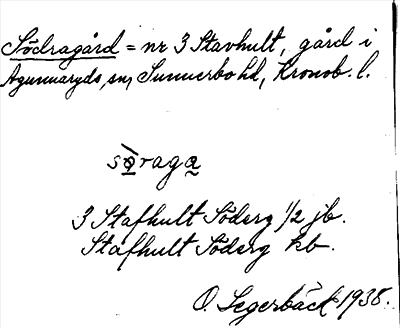 Södragård = nr 3 Stavhult, gård i
Agunnaryds sn, Sunnerbo hd, Kronob. l.
3 Stafhult Söderg 1/2 jb.
Stafhult Söderg kb.
O. Segerbäck 1938.